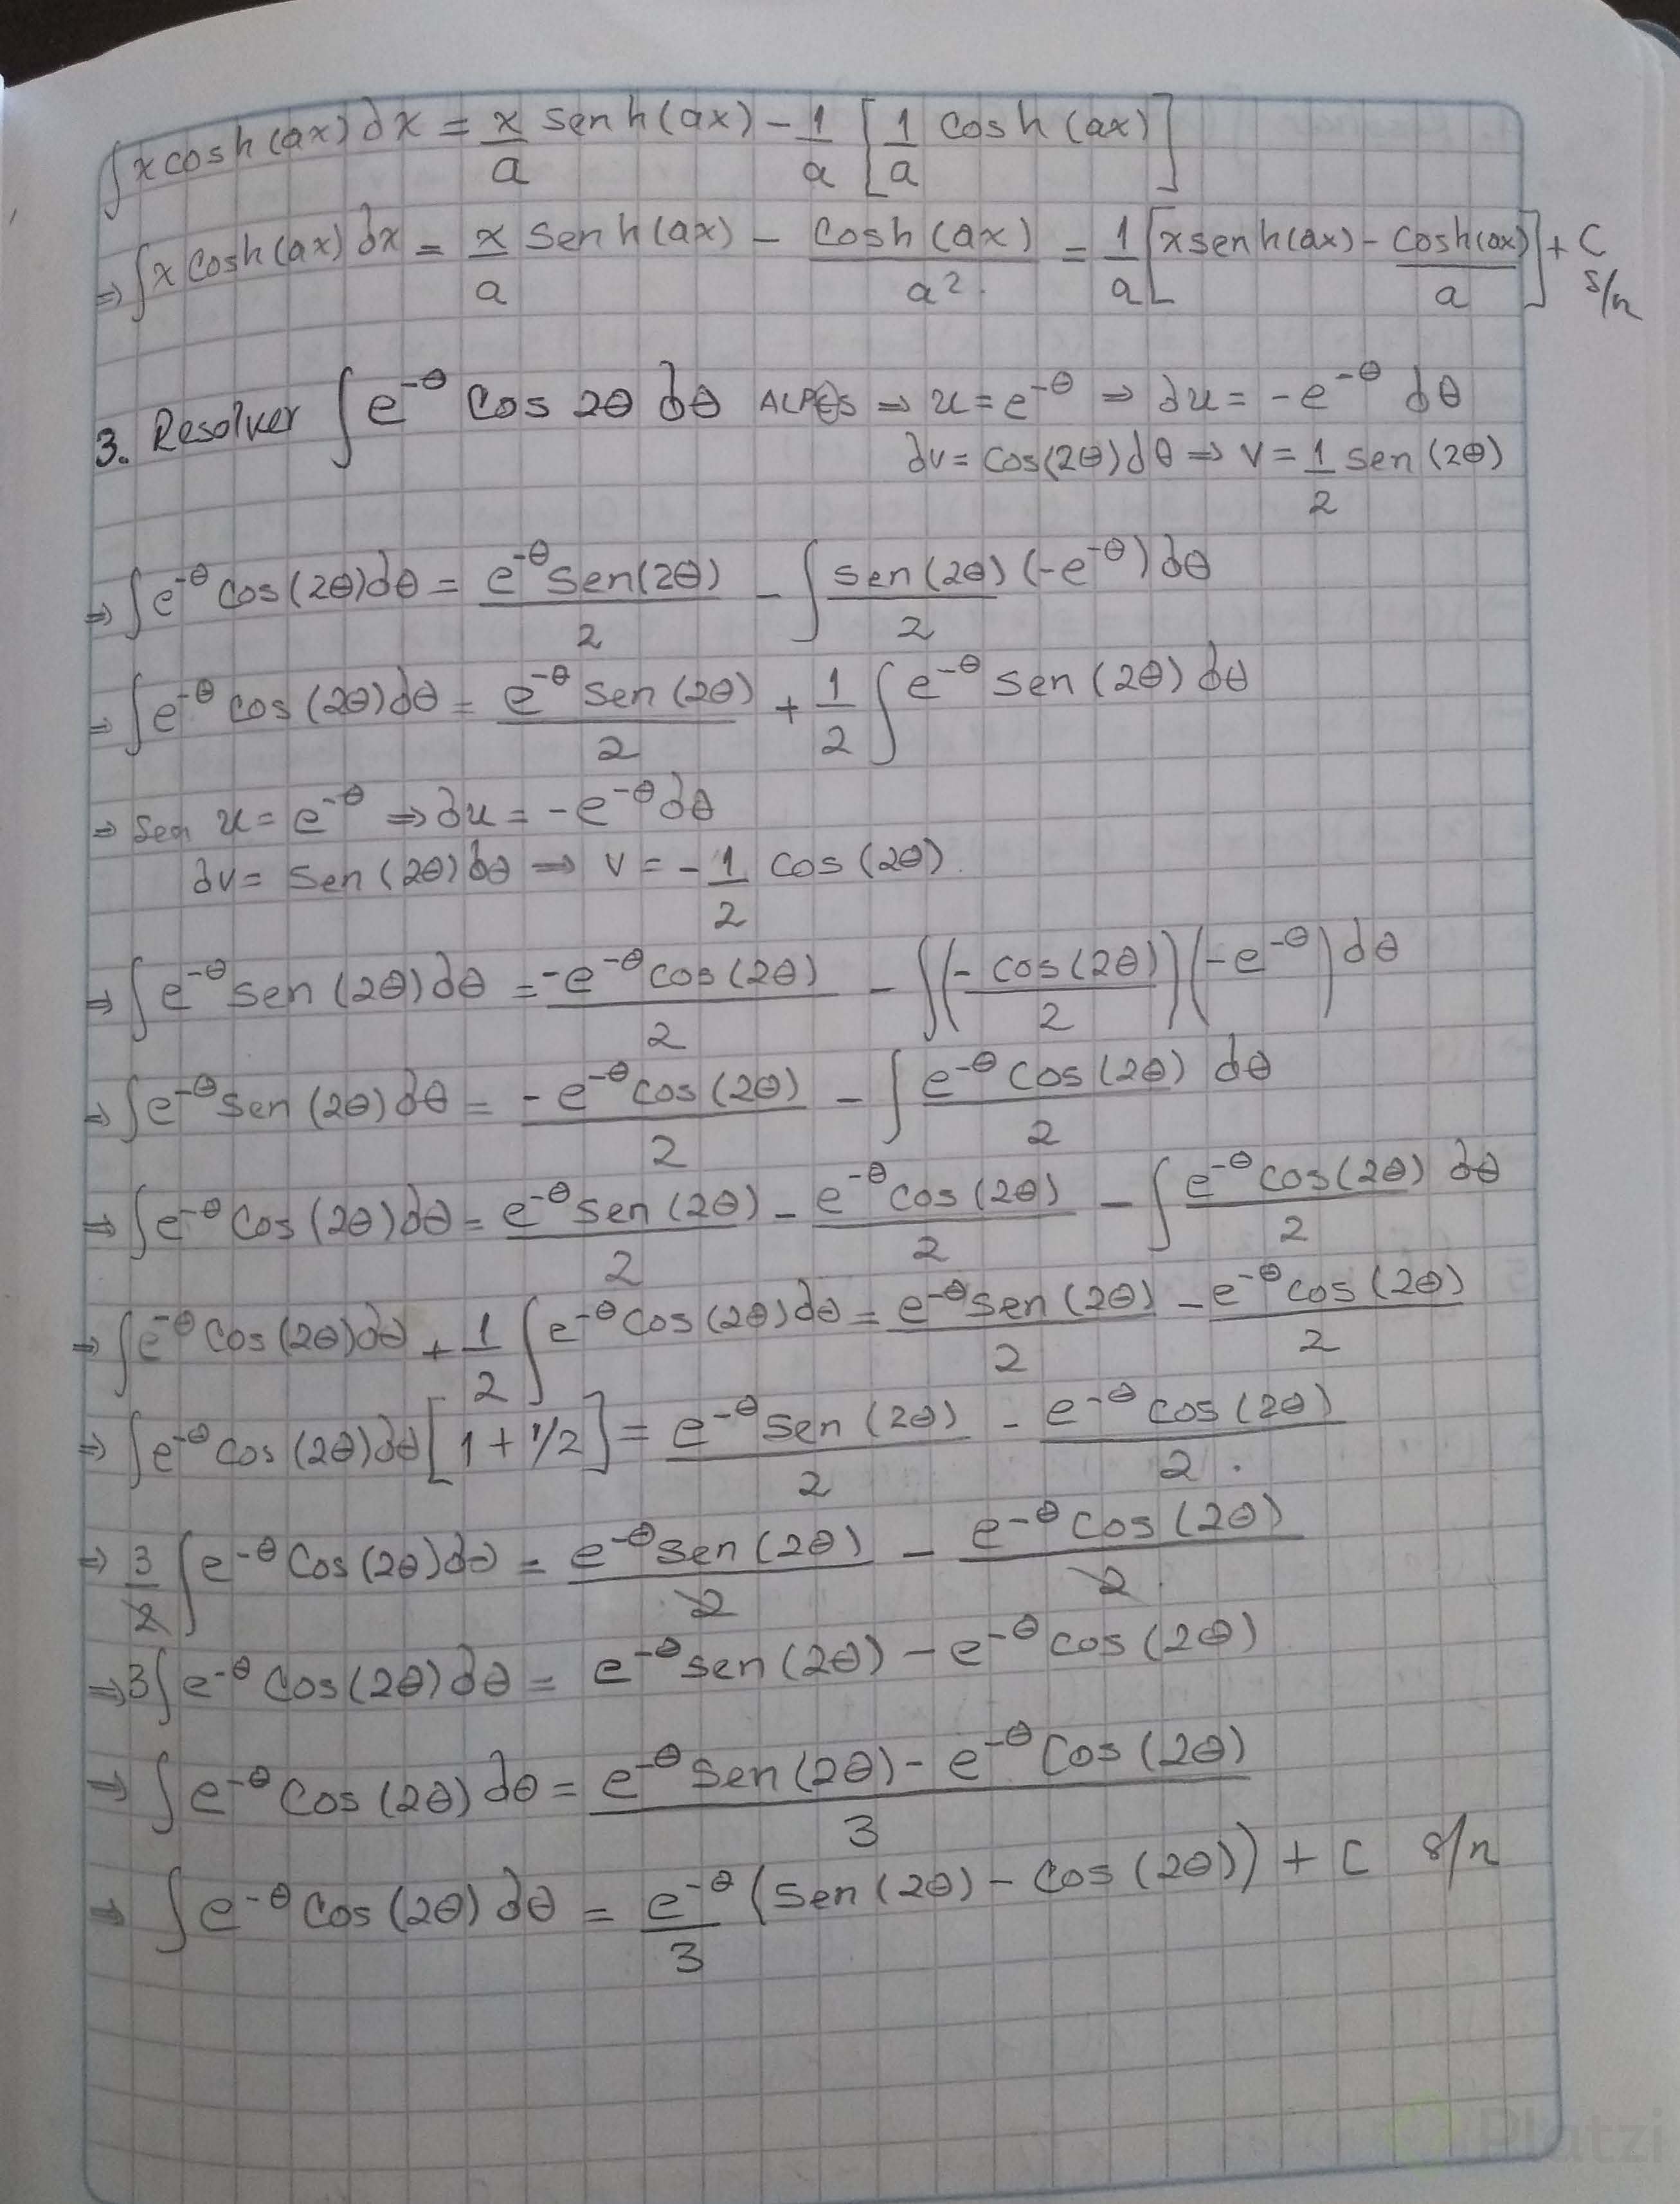 ∫x cosh(ax)dx = x/a senh(ax) - 1/a [1/a cosh(ax)]
⇒ ∫x cosh(ax)dx = x/a senh(ax) - cosh(ax)/a² = 1/a [x senh(ax) - cosh(ax)/a] + C s/n
3. Resolver ∫e^-θ cos 2θ dθ ALPES ⇒ u = e^-θ ⇒ du = -e^-θ dθ
dv = cos(2θ)dθ ⇒ v = 1/2 sen(2θ)
⇒ ∫e^-θ cos(2θ)dθ = e^-θ sen(2θ)/2 - ∫ sen(2θ)/2 (-e^-θ)dθ
⇒ ∫e^-θ cos(2θ)dθ = e^-θ sen(2θ)/2 + 1/2 ∫e^-θ sen(2θ)dθ
⇒ Sea u = e^-θ ⇒ du = -e^-θ dθ
dv = sen(2θ)dθ ⇒ v = -1/2 cos(2θ).
⇒ ∫e^-θ sen(2θ)dθ = -e^-θ cos(2θ)/2 - ∫(-cos(2θ)/2)(-e^-θ)dθ
⇒ ∫e^-θ sen(2θ)dθ = -e^-θ cos(2θ)/2 - ∫ e^-θ cos(2θ)/2 dθ
⇒ ∫e^-θ cos(2θ)dθ = e^-θ sen(2θ)/2 - e^-θ cos(2θ)/2 - ∫ e^-θ cos(2θ)/2 dθ
⇒ ∫e^-θ cos(2θ)dθ + 1/2 ∫e^-θ cos(2θ)dθ = e^-θ sen(2θ)/2 - e^-θ cos(2θ)/2
⇒ ∫e^-θ cos(2θ)dθ [1 + 1/2] = e^-θ sen(2θ)/2 - e^-θ cos(2θ)/2.
⇒ 3/2 ∫e^-θ cos(2θ)dθ = e^-θ sen(2θ)/2 - e^-θ cos(2θ)/2.
⇒ 3∫e^-θ cos(2θ)dθ = e^-θ sen(2θ) - e^-θ cos(2θ)
⇒ ∫e^-θ cos(2θ)dθ = e^-θ sen(2θ) - e^-θ cos(2θ)/3
⇒ ∫e^-θ cos(2θ)dθ = e^-θ/3 (sen(2θ) - cos(2θ)) + C s/n
Platzi